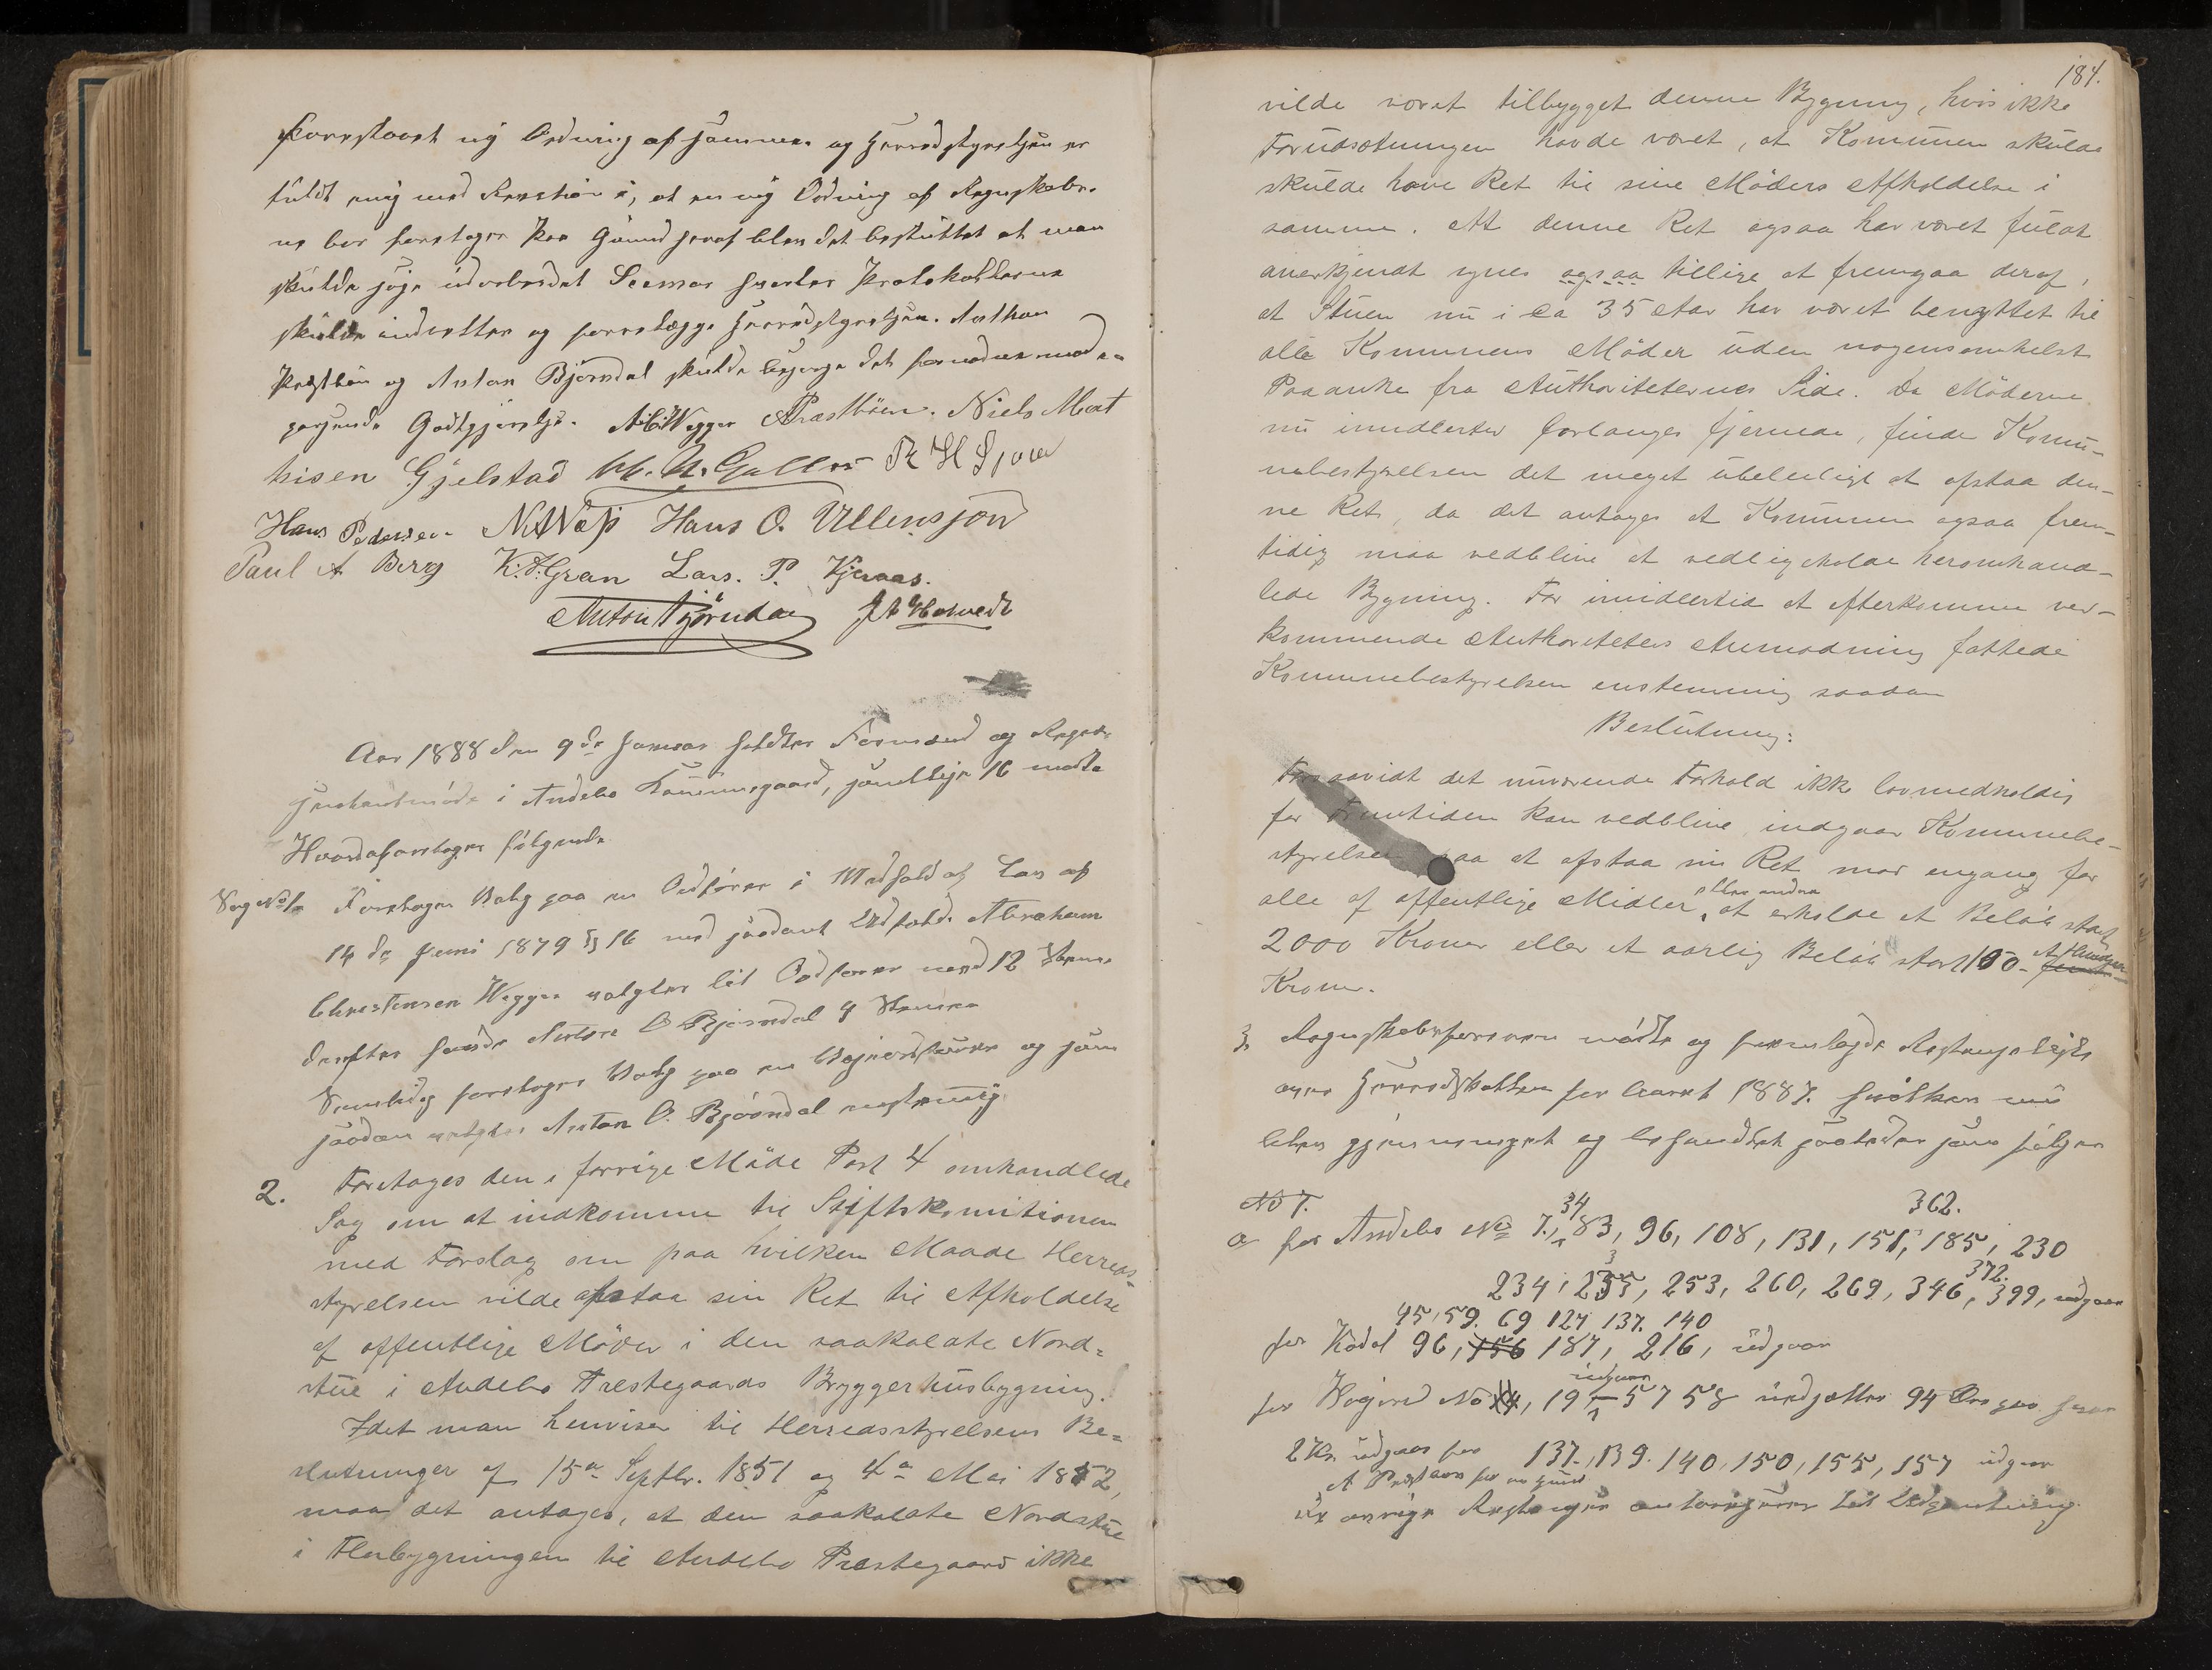 ny Ordning af samme og Herredstyrelsen er
fuldt enig med Revision i, at en ny Ordning af Regnskaber-
ne bør foretages Paa Grund heraf blev det besluttet at man
skulde søge udarbeidet Scemar hvorefter Protokollerne
skulde indrettes og forelægge Herredstyrelsen. Anthon
Præstbøen og Anton Bjørndal skulde besørge det fornødne mod
Godtgjørelse. A Chr Wegger APræstbøen. Niels Mat
hisen Gjelstad M. A. Gallis R H Sjue
Hans Pedersen N A Næss Hans O. Ullensjon
Paul A Berg K. A. Gran Lars. P. Kjeraas.
Anton Bjørndal J A Hotvedt
Aar 1888 den 9de Januar holdtes Formænd og Repræ-
sentantmøde i Andebo Kommunegaard, samtlige 16 mødte
Hvorda foretages følgende
Sag No 1. Foretages Valg paa en Ordfører i Medhold af Lov af
14de Juni 1879 § 16 ved saadant Udfald. Abraham
Christensen Wegger valgtes til Ordfører med 12 Stemmer
derefter havde Anton O. Bjørndal 4 Stemmer
Samtidig foretages Valg paa en Viceordfører og som
saadan valgtes Anton O. Bjørndal enstemmig
2. Foretages den i forrige Møde Post 4 omhandlede
Sag om at indkomme til Stiftskomitionen
med Forslag om paa hvilken Maade Herreds-
styrelsen vilde afstaa sin Ret til Afholdelse
af offentlige Møder i den saakalate Nord-
stue i Andebo Præstegaards Bryggerhusbygning.
Idet man henviser til Herredsstyrelsens Be-
slutninger af 15de Septbr. 1851 og 4de Mai 1852,
maa det antages, at den saakalate Nordstue
i Florbygningen til Andebo Præstegaard ikke
184.
vilde været tilbygget denne Bygning, hvis ikke
Forudsætningen havde været, at Komunen skulde
skulde have Ret til sine Møders Afholdelse i
samme. At denne Ret ogsaa har været fuldt
anerkjendt synes ogsaa tillige at fremgaa deraf,
at Stuen nu i ca 35 Aar har været benyttet til
alle Komunens Møder uden nogensomhelst
Paaanke fra Authoriteternes Side. Da Møderne
nu imidlertid forlanges fjernede, finder Komu-
nebestyrelsen det meget ubeleiligt at afstaa den-
ne Ret, da det antages at Komunen ogsaa frem-
tidig maa vedblive at vedligeholde heromhand-
lede Bygning. For imidlertid at efterkomme ved-
kommende Authoriteters Anmodning fattede
Kommunebestyrelsen enstemmig saadan
Beslutning:
Forsaavidt det nuværende Forhold ikke lovmedholdig
for Fremtiden kan vedblive indgaar Kommunebe-
styrelsen paa at afstaa sin Ret mod engang for
alle af offentlige Midler, eller andre at erholde et Beløb stort
2000 Kroner eller et aarlig Beløb stort 100 - et Hundrede
Kroner.
3 Regnskabsføreren mødte og fremlagde Restanceliste
over Herredskatten for Aaret 1887. hvilken nu
blev gjennemgaaet og behandlet saaledes som følger
No 7.
a for Andebo No 7, 34 83, 96, 108, 131, 151, 185, 362. 230
234, 235, 253, 260, 269, 346, 372. 399, udgaar
45, 59. 69 127 137. 140
for Kodal 96, 156 187, 216, udgaar
for Høijord No 14, 19 udgaar 57 58 nedsættes 94 Øre
2 Kr. udgaar for 137., 139. 140, 150, 155, 157 udgaar
De øvrige Restancer til Udpantning.